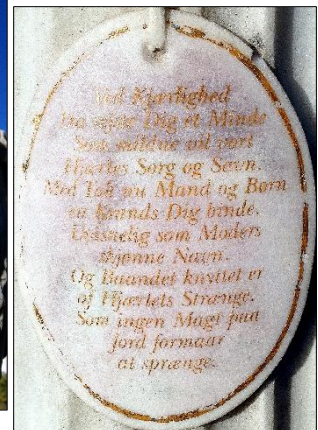 Ved Kjærlighed
Du rejste Dig et Minde
Som sildine vil vort
Hjærtes Sorg og Savn.
Med Tak nu Mand og Børn
en Krands Dig binde.
Uvisnelig som Moders
skjønne Navn.
Og Baandet knyttet er
af Hjærtets Strænge.
Som ingen Magt paa
jord formaar
at sprænge.